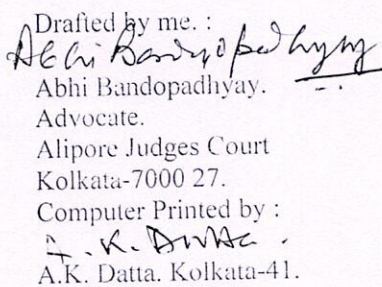 Drafted by me. :
Abhi Bandyopadhyay
Abhi Bandopadhyay.
Advocate.
Alipore Judges Court
Kolkata-7000 27.
Computer Printed by :
A. K. Datta.
A.K. Datta. Kolkata-41.